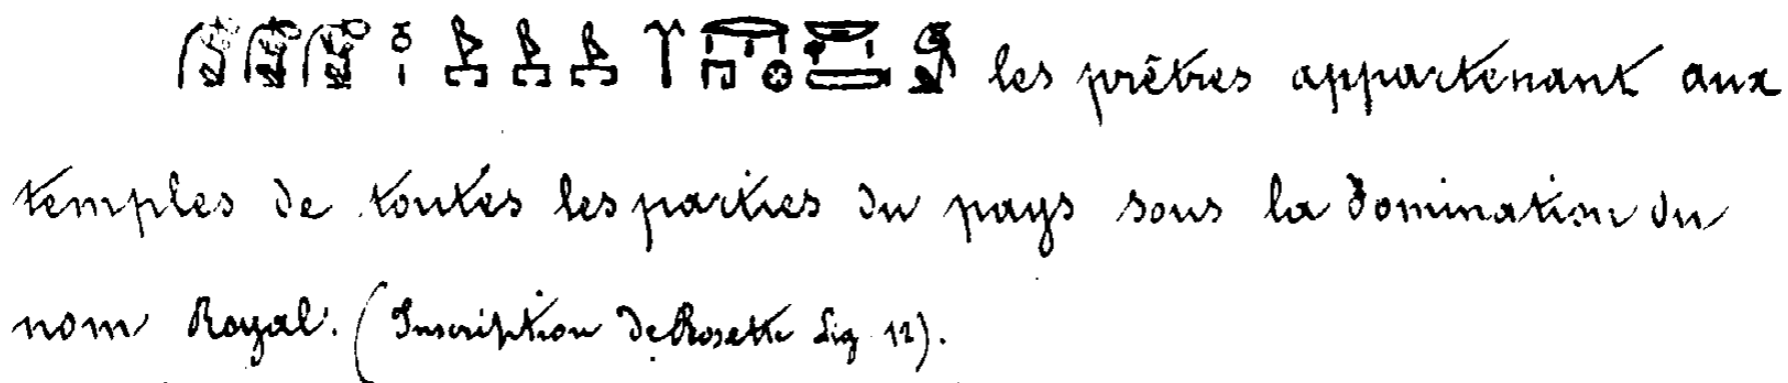 les prêtres appartenant aux
temples de toutes les parties du pays sous la domination du
nom Royal. (Inscription de Rosette Lig. 12).